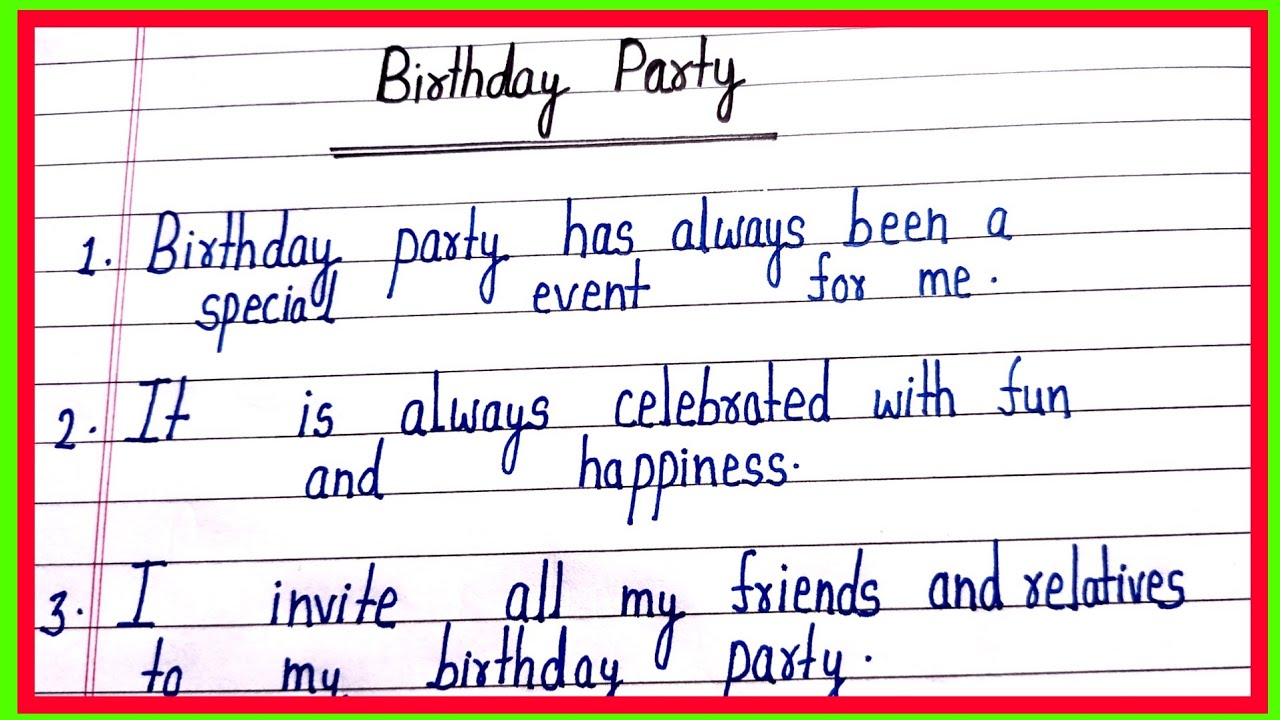 Birthday Party
1. Birthday party has always been a
special event for me.
2. It is always celebrated with fun
and happiness.
3. I invite all my friends and relatives
to my birthday party.